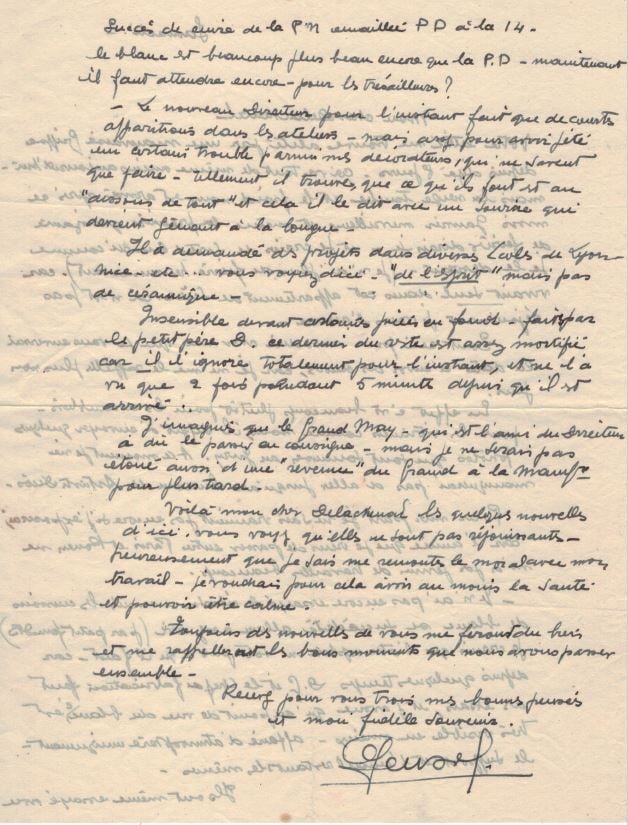 Succès de cuire de la PN émaillée PD à la 14 -
le blanc est beaucoup plus beau encore que la P.D - maintenant
il faut attendre encore - pour les trésailleurs?
- Le nouveau Directeur pour l'instant fait que de courtes
apparitions dans les ateliers - mais assez pour avoir jeté
un certain trouble parmi mes décorateurs, qui ne savent
que faire - tellement il trouve, que ce qu'ils font est au
"dessous de tout" et cela il le dit avec un sourire qui
devient gênant à la longue
Il a demandé des projets dans diverses Écoles de Lyon
Nice - etc... vous voyez d'ici - "de l'esprit" mais pas
de céramique. -
Insensible devant certaines pièces en fond - faites par
le petit père D. ce dernier du reste est assez mortifié
car il l'ignore totalement pour l'instant, et ne l'a
vu que 2 fois pendant 5 minute depuis qu'il est
arrivé...
J'imagine que le Grand May - qui est l'ami du Directeur
a dû le passer en consigne - mais je ne serais pas
étonné aussi d'une "revenue" du Grand à la Manufre
pour plus tard.
Voilà mon cher les quelques nouvelles
d'ici. vous voyez qu'elles ne sont pas réjouissantes -
heureusement que je sais me remonter le moral avec mon
travail - je voudrais pour cela avoir au moins la santé
et pouvoir être calme.
Toujours des nouvelles de vous me feront du bien
et me rappelleront les bons moments que nous avons passer
ensemble -
Recevez pour vous trois mes bonnes pensées
et mon fidèle souvenir.